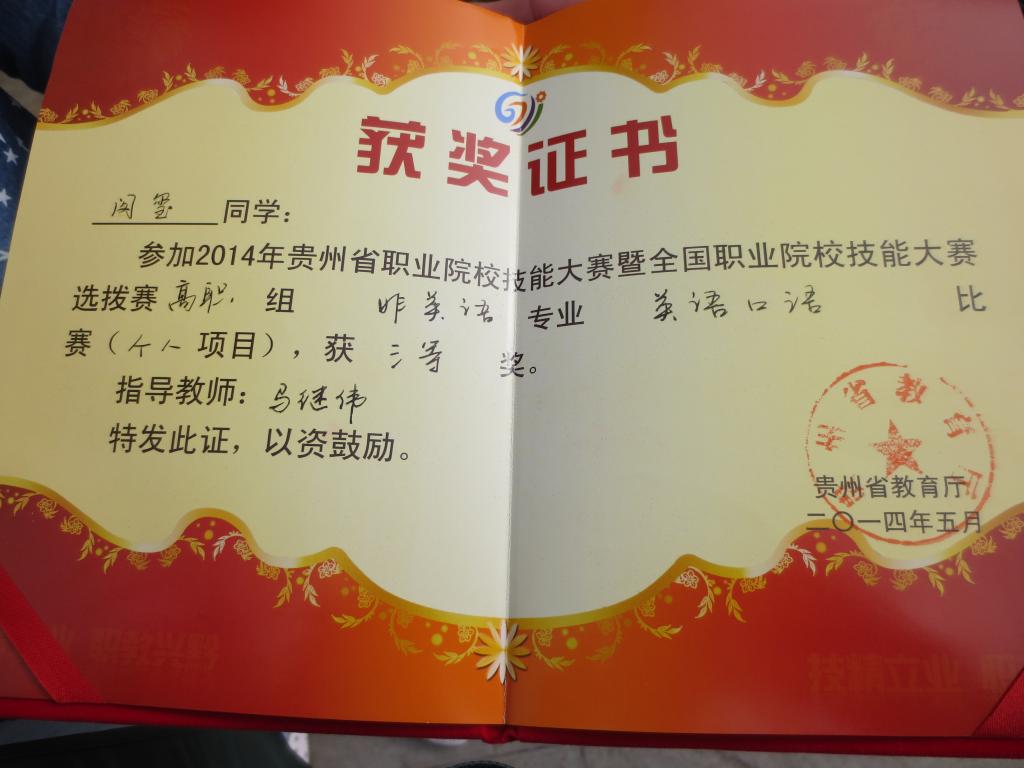 获奖证书
闵玺 同学：
参加2014年贵州省职业院校技能大赛暨全国职业院校技能大赛
选拨赛 高职 组 非英语 专业 英语口语 比
赛（个人 项目），获 三等 奖。
指导教师：马继伟
特发此证，以资鼓励。
贵州省教育厅
二〇一四年五月